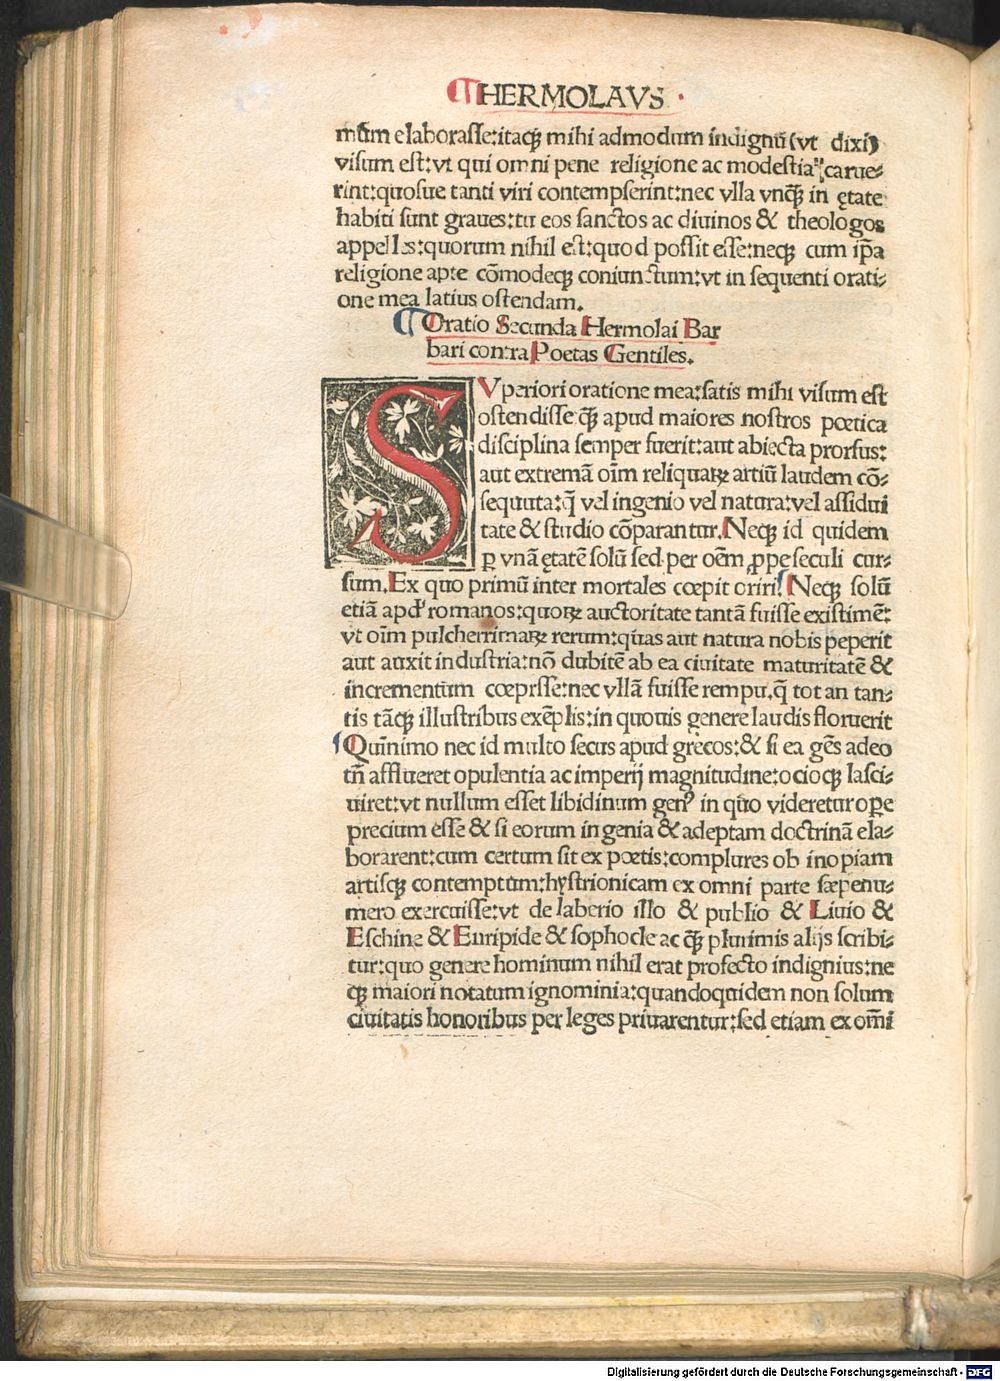 HERMOLAVS
mūm elaborasse:itaqꝫ mihi admodum indignū (vt dixi)
visum est:vt qui omni pene religione ac modestia carue⸗
rint:quosue tanti viri contempserint:nec vlla vnqꝫ in ętate
habiti sunt graues:tu eos sanctos ac diuinos & theologos
appelles:quorum nihil est:quod possit esse:neqꝫ cum ip̄a
religione apte cōmodeqꝫ coniunctum:vt in sequenti orati⸗
one mea latius ostendam.
Oratio Secunda Hermolai Bar
bari contra Poetas Gentiles.
SVperiori oratione mea:satis mihi visum est
ostendisse qꝫ apud maiores nostros poetica
disciplina semper fuerit:aut abiecta prorsus:
aut extremā oīm reliquaꝝ artiū laudem cō⸗
sequuta:q̄ vel ingenio vel natura:vel assidui
tate & studio cōparantur.Neqꝫ id quidem
ꝑ vnā ętatē solū sed per oēm ꝓpe seculi cur⸗
sum.Ex quo primū inter mortales cœpit oriri. Neqꝫ solū
etiā apđ romanos:quoꝝ auctoritate tantā fuisse existimē:
vt oīm pulcherrimaꝝ rerum:quas aut natura nobis peperit
aut auxit industria:nō dubitē ab ea ciuitate maturitatē &
incrementum cœpisse:nec vllā fuisse rempu.q̄ tot an tan⸗
tis tāqꝫ illustribus exēplis:in quouis genere laudis floruerit
Quīnimo nec id multo secus apud grecos:& si ea gēs adeo
tn̄ afflueret opulentia ac imperij magnitudine:ocioqꝫ lasci⸗
uiret:vt nullum esset libidinum genꝰ in quo videretur oꝑe
precium esse & si eorum ingenia & adeptam doctrinā ela⸗
borarent:cum certum sit ex poetis:complures ob inopiam
artisqꝫ contemptum:hystrionicam ex omni parte sæpenu⸗
mero exercuisse:vt de laberio illo & publio & Liuio &
Eschine & Euripide & sophocle ac qꝫ plurimis alijs scribi⸗
tur:quo genere hominum nihil erat profecto indignius:ne
qꝫ maiori notatum ignominia:quandoquidem non solum
ciuitatis honoribus per leges priuarentur:sed etiam ex om̄i
Digitalisierung gefördert durch die Deutsche Forschungsgemeinschaft - DFG